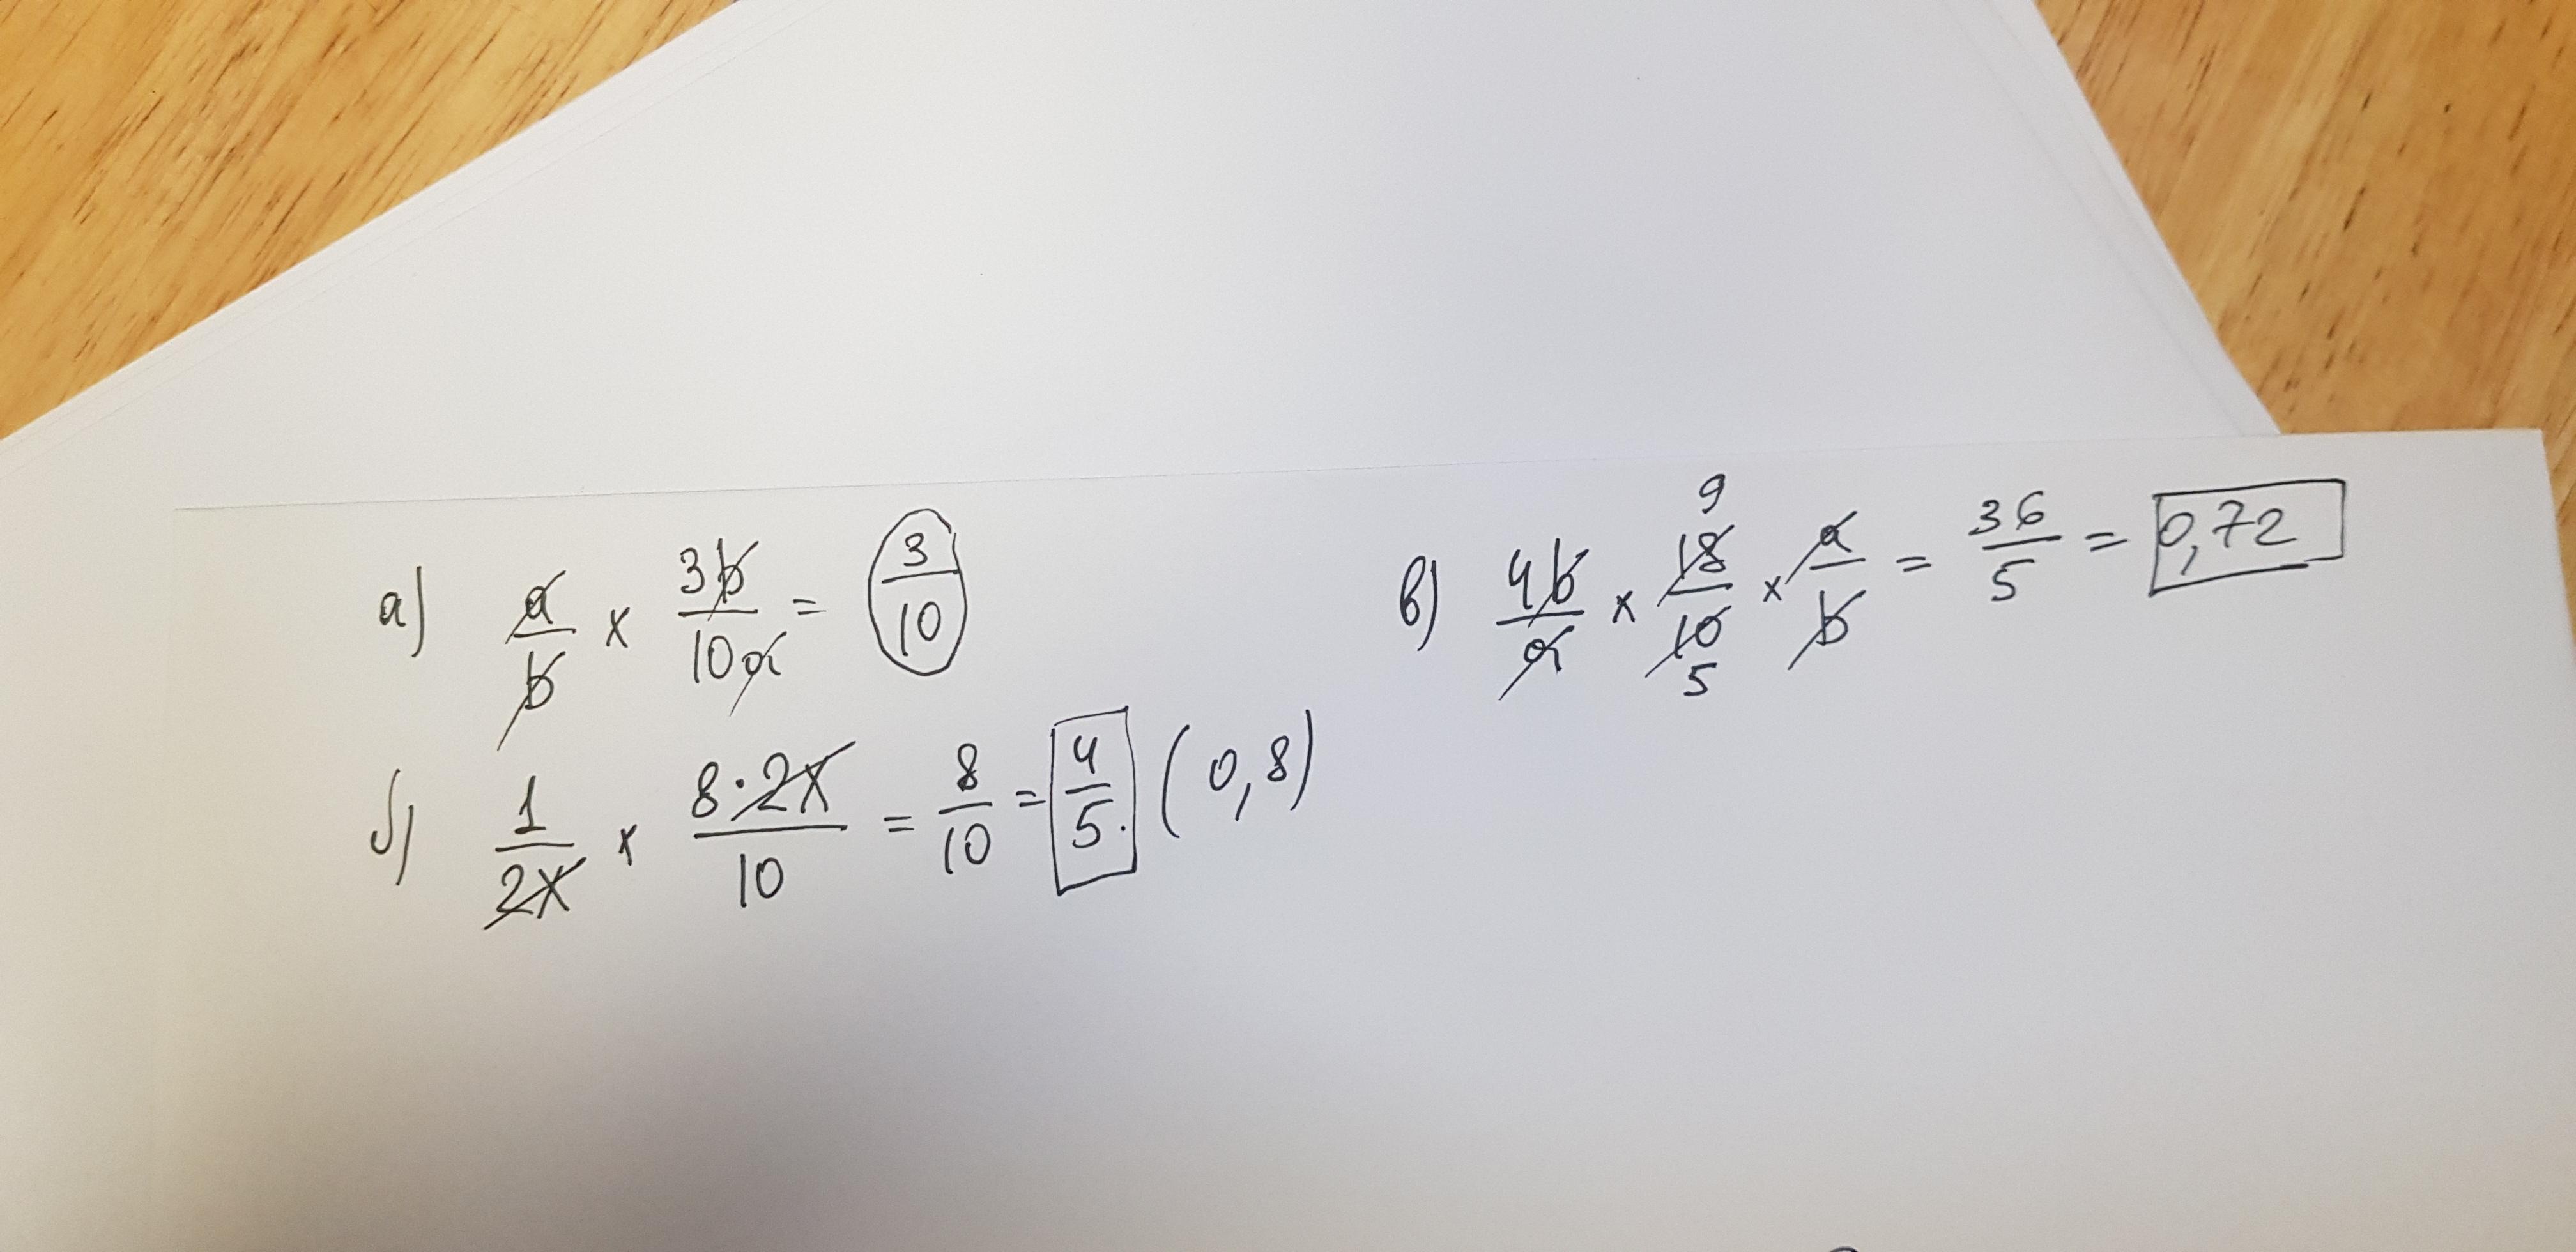 а) a/b × 3b/10a = 3/10
б) 1/2x × 8·2x/10 = 8/10 = 4/5. (0,8)
в) 4b/a × 18/10 9 5 × a/b = 36/5 = 0,72